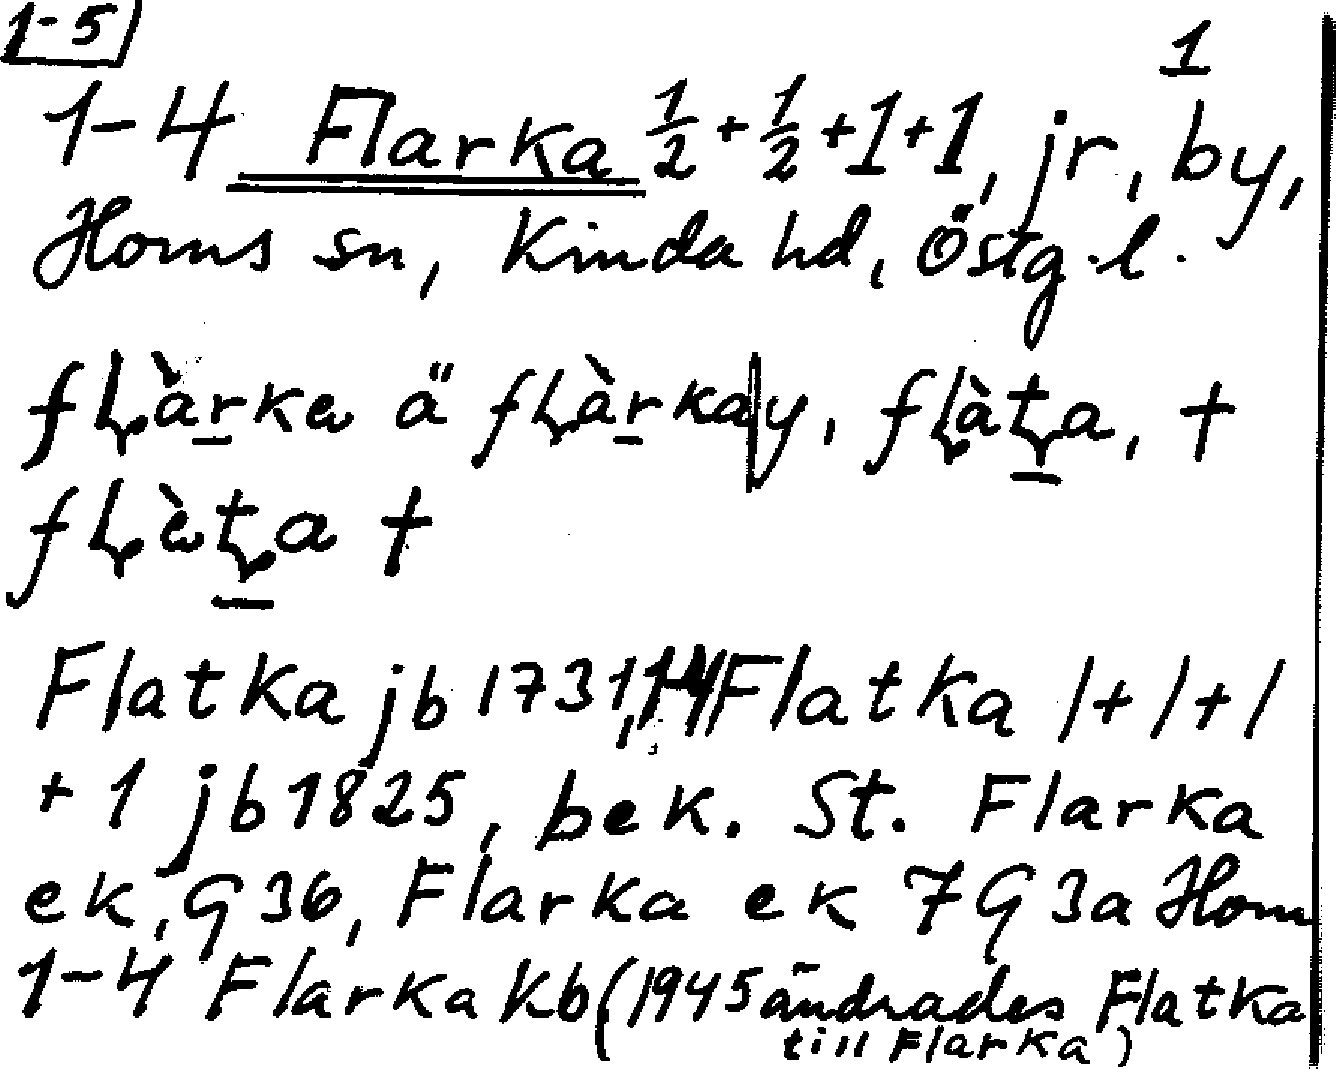 1-5
1
1-4 Flarka ½+½+1+1, jr, by,
Horns sn, Kinda hd, Östg.l.
fḷàrka ä fḷàrka|y, fḷàṭa, †
fḷèṭa †
Flatka jb 1731, 1-4 Flatka 1+1+1
+1 jb 1825, bek. St. Flarka
ek, G36, Flarka ek 7G3a Horn
1-4 Flarka kb (1945 ändrades Flatka
till Flarka)